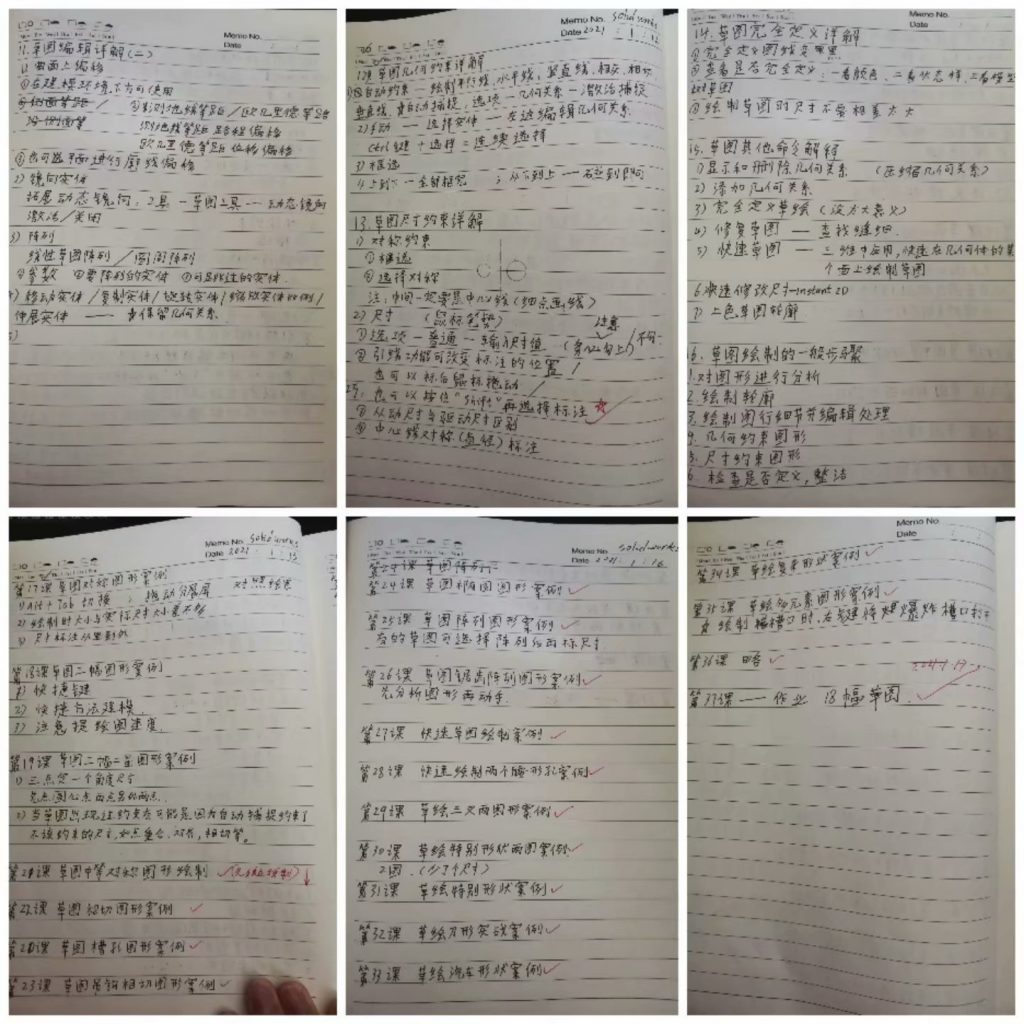 Memo No.
Date
11.草图编辑详解(二)
1)曲面上偏移
①在建模环境下方可使用
②测地线等距/欧几里德等距
测地线等距 路程偏移
欧几里德等距 位移偏移
③也可跟平面进行廓线偏移
2)镜向实体
拓展动态镜向:工具—草图工具—动态镜向
激活/关闭
3)阵列
线性草图阵列/圆周阵列
①参数 ②要阵列的实体 ③可跳过的实体.
4)移动实体/复制实体/旋转实体/缩放实体比例/
伸展实体 —— 保留几何关系
5)
Memo No. solidworks
Date 2021 . 1 . 12
12.草图几何约束详解
1)自动约束—绘制平行线,水平线,竖直线,相交,相切
垂直线,自动捕捉,选项—几何关系—激活捕捉
2)手动 — 选择实体 — 左边编辑几何关系
Ctrl键+选择=连续选择
3)框选
从上到下—全部框完 ; 从下到上—
13.草图尺寸约束详解
1)对称约束
①框选
②选择对称
注:中间一定要是中心线(细点画线)
2)尺寸 (鼠标笔势) 注意
①选项—普通—输入尺寸值
②引线功能可改变标注的位置
也可以标后鼠标拖动
注:也可以按住"Shift"再选择标注 ☆
③从动尺寸与驱动尺寸区别
④中心线对称(直径)标注
Memo No.
Date
14.草图完全定义详解
①完全定义图线变黑
②查看是否完全定义:一看颜色,二看状态栏,三看模型
树草图
③绘制草图时尺寸不要相差太大
15.草图其他命令解释
1)显示和删除几何关系 (压缩几何关系)
2)添加几何关系
3)完全定义草绘(没大意义)
4)修复草图 — 查找缝细
5)快速草图 — 三维中应用,快速在几何体的某
个面上绘制草图
6.快速修改尺寸-instant 2D
7)上色草图轮廓
16.草图绘制的一般步骤
1.对图形进行分析
2.绘制轮廓
3.绘制图行细节并编辑处理
4.几何约束图形
5.尺寸约束图形
6.检查是否定义,整洁
Memo No. solidworks
Date 2021 . 1 . 13
第17课 草图对称图形案例
1)Alt+Tab 切换 ; 拖动分屏
2)绘制时大小与实际尺寸大小差不多
3)尺寸标注从里到外
第18课 草图二幅图形案例
1)快捷键
2)快捷方法建模
3)注意提绘图速度
第19课 草图二幅二呈图形案例
1)三点定一个角度尺寸
先点圆心点再点另外两点.
2)当草图出现过约束有可能是因为自动捕捉约束了
不该约束的尺寸,如点重合,对齐,相切等。
第21课 草图中等对称图形绘制
第22课 草图相切图形案例
第20课 草图槽孔图形案例
第23课 草图吊钩相切图形案例
Memo No. solidworks
Date 2021 . 1 . 16
第24课 草图椭圆图形案例
第25课 草图阵列图形案例
有的草图可选择阵列后再标尺寸
第26课 草图锯齿阵列图形案例
先分析图形再动手.
第27课 快速草图绘制案例
第28课 快速绘制两个腰形孔案例
第29课 草绘三叉两图形案例
第30课 草绘特别形状两图案例
2图.(少了个尺寸)
第31课 草绘特别形状案例
第32课 草绘刀形实战案例
第33课 草绘汽车形状案例
Memo No.
Date
第34课 草绘复杂形状案例
第35课 草绘多元素图形案例
第36课 略
第37课——作业 18幅草图